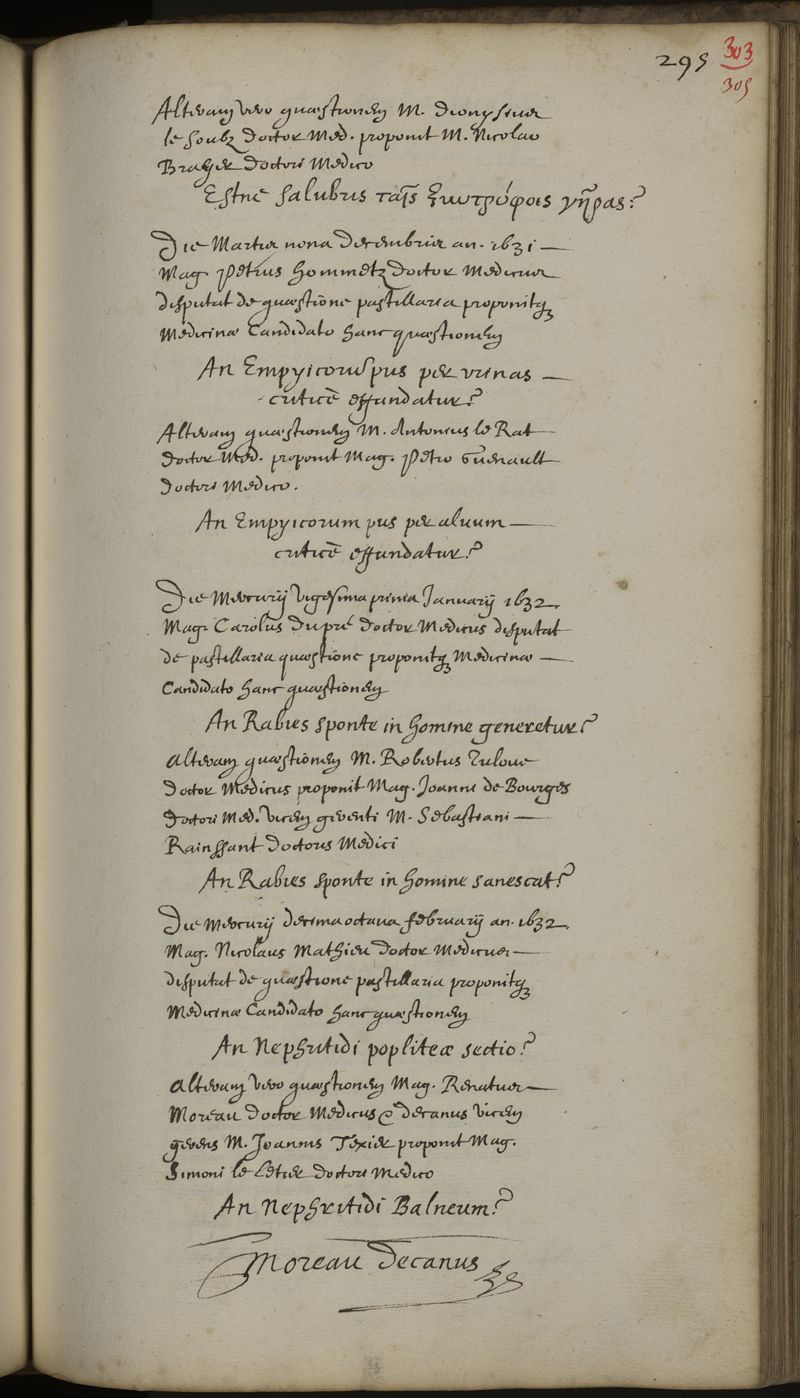 295 303
305
Alteram vero quæstionem M. Dionysius
le Soubz Doctor Med. proponit M. Nicolao
Brayer Doctori Medico
Estne salubris ταῖς ζωοτρόφοις γῆρας?
Die Martis nona Decembris an. 1631
Mag. Petrus Hommetz Doctor Medicus
disputat de quæstione pastillaria proponitq
Medicinæ Candidato hanc quæstionem
An Empyicorum pus per urinas
criticè effundatur?
Alteram quæstionem M. Antonius le Rat
Doctor Med. proponit Mag. Petro Guenault
Doctori Medico.
An Empyicorum pus per aluum
criticè effundatur?
Die Mercurij vigesima prima Januarij 1632.
Mag. Carolus Dupré Doctor Medicus disputat
de pastillaria quæstione proponitq Medicinæ
Candidato hanc quæstionem
An Rabies sponte in homine generetur?
Alteram quæstionem M. Robertus Tuloue
Doctor Medicus proponit Mag. Joanni de Bourges
Doctori Med. vicem gerenti M. Sebastiani
Rainssant Doctoris Medici
An Rabies sponte in homine sanescat?
Die Mercurij decima octaua februarij an. 1632.
Mag. Nicolaus Mathieu Doctor Medicus
disputat de quæstione pastillaria proponitq
Medicinæ Candidato hanc quæstionem
An Nephritidi popliteæ sectio?
Alteram vero quæstionem Mag. Renatus
Moreau Doctor Medicus & decanus vicem
gerens M. Joannis Texier proponit Mag.
Simoni le Letier Doctori Medico
An Nephritidi Balneum?
Moreau Decanus